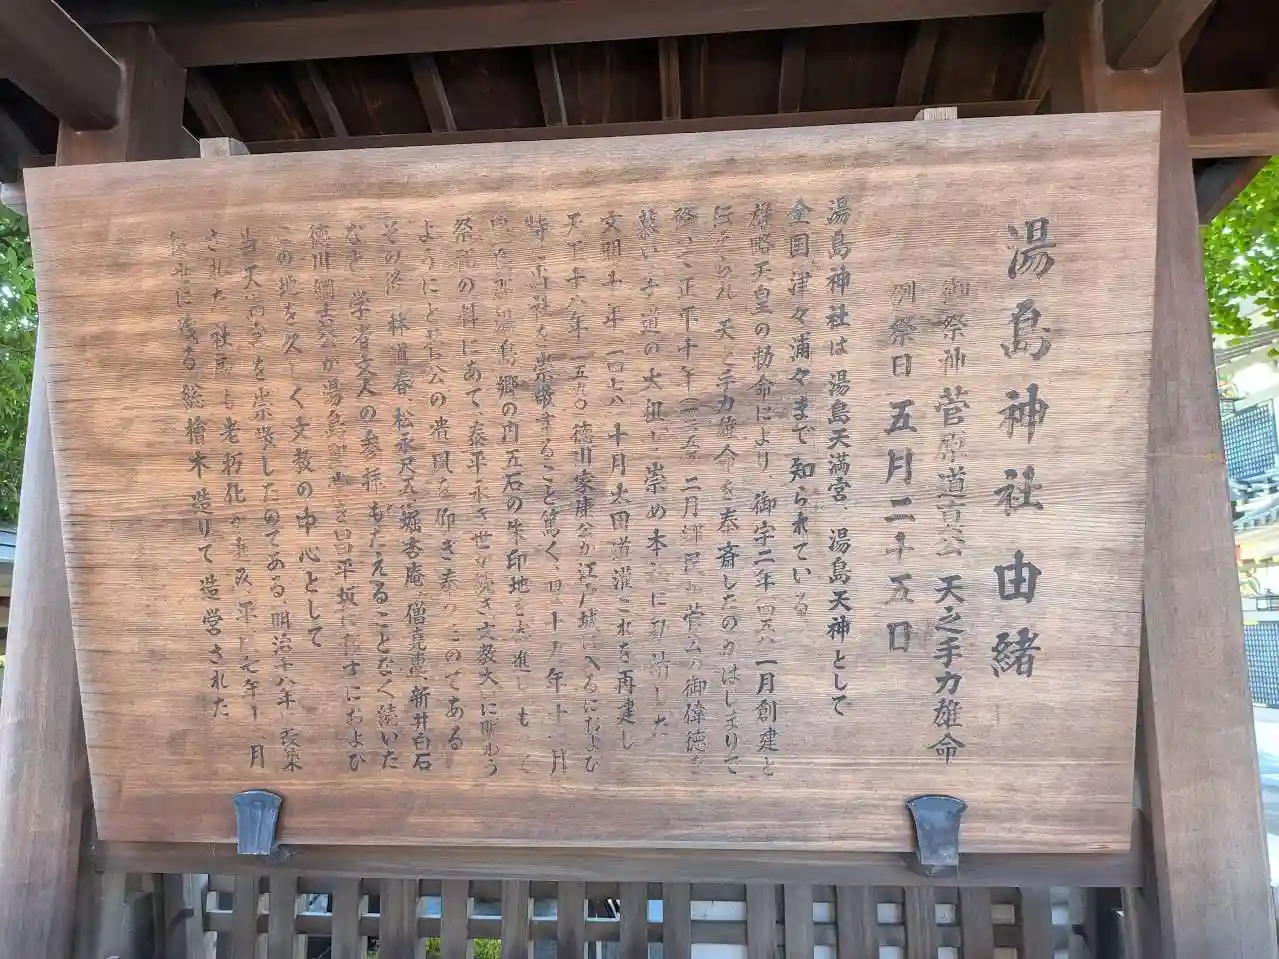 湯島神社由緒
御祭神 菅原道真公 天之手力雄命
例祭日 五月二十五日
湯島神社は湯島天満宮、湯島天神として
全国津々浦々まで知られている
雄略天皇の勅命により、御宇二年 四五八 一月創建と
伝えられ 天之手力雄命を奉斎したのがはじまりで
降って正平十年(一三五五)二月郷民が菅公の御偉徳を
慕い 文道の大祖と崇め本社に勧請した
文明十年 一四七八 十月太田道灌これを再建し
天正十八年 一五九〇 徳川家康公が江戸城に入るにおよび
特に当社を崇敬すること篤く、翌十九年十一月
豊島郡湯島郷の内五石の朱印地を寄進しもって
祭祀の料にあて、泰平永き世が続き文教大いに賑わう
ようにと菅公の遺風を仰ぎ奉ったのである
その後 林道春、松永尺五、堀杏庵、僧堯恵、新井白石
など 学者文人の参拝もたえることなく続いた
徳川綱吉公が湯島聖堂を昌平坂に移すにおよび
この地を久しく文教の中心として
当天満宮を崇敬したのである 明治十八年 改築
された社殿も老朽化が 平成七年十二月
総檜木造りで造営された